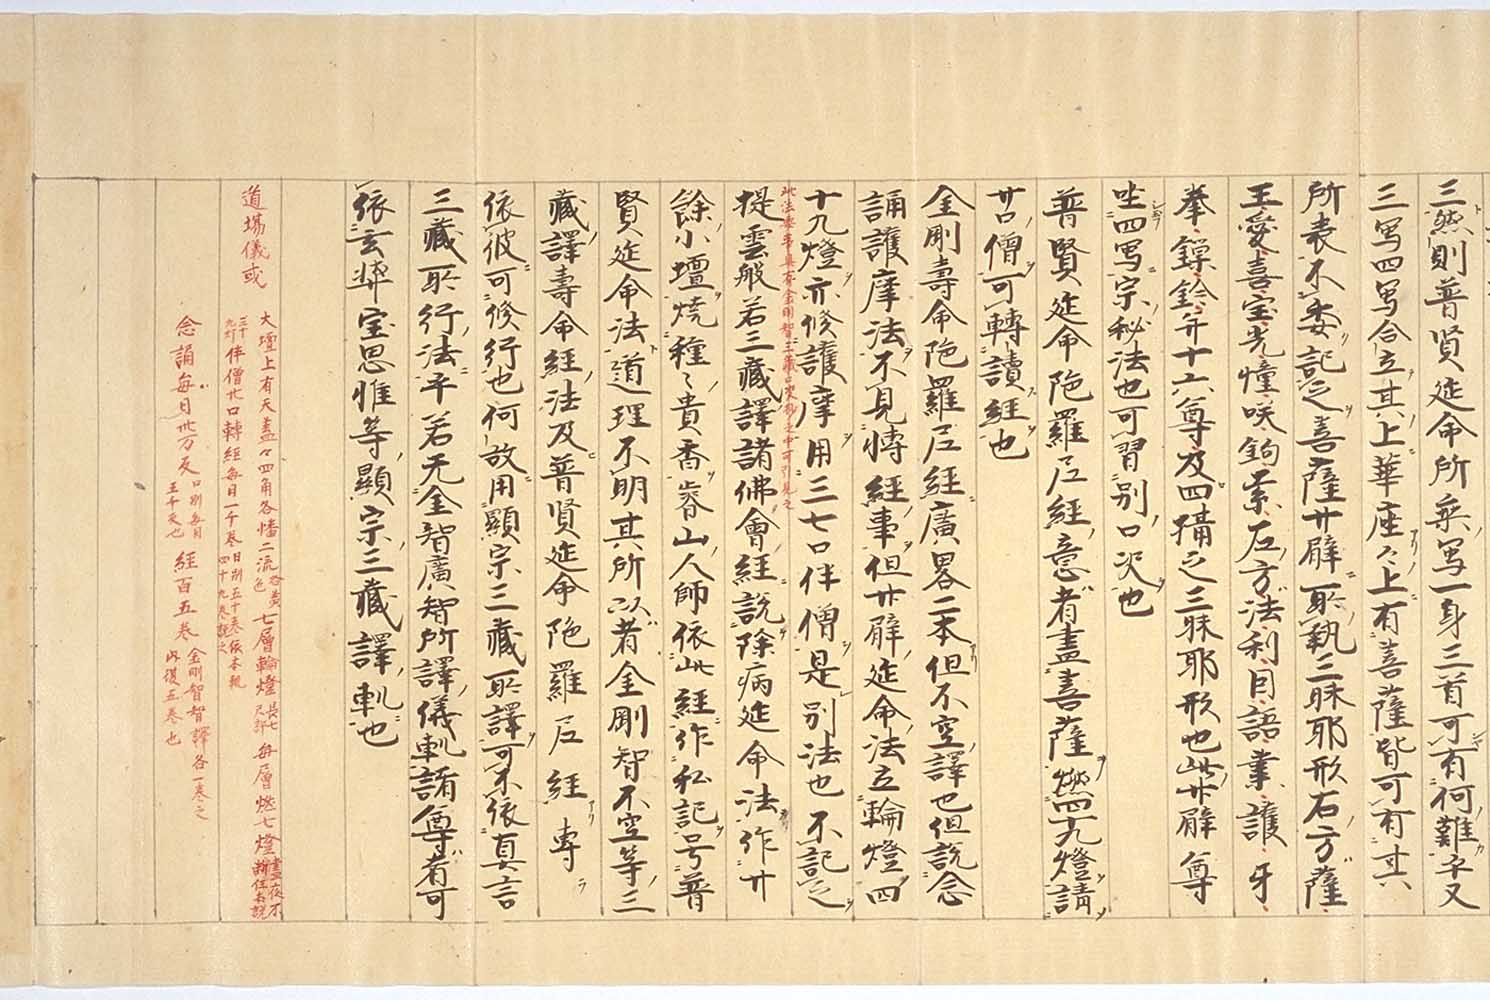 三然則普賢延命所乘写一身三首可有何難乎又
三写四写合立其上華座々上有菩薩皆可有其
所表不委記之菩薩廿臂所執三昧耶形右方薩
王愛喜宝光幢咲鉤索左方法利因語業護牙
拳鏁鈴并十六尊及四攝之三昧耶形也此廿臂尊
坐四写宗秘法也可習別口决也
普賢延命陀羅尼經意者畫菩薩燃四十九燈請
廿口僧可轉讀經也
金剛壽命陀羅尼經廣畧二本但不空譯也但說念
誦護摩法不見愽經事但廿臂延命法立輪燈四
十九燈亦修護摩用三七口伴僧是別法也不記之
提雲般若三藏譯諸佛會經說除病延命法作廿
餘小壇燒種々貴香睿山人師依此經作私記号普
賢延命法道理不明其所以者金剛智不空等三
藏譯壽命經法及普賢延命陀羅尼經專
依彼可修行也何故用顯宗三藏所譯可不依真言
三藏所行法乎若无金智廣智所譯儀軌諸尊者可
依玄奘宝思惟等顯宗三藏譯軌也
道場儀或
大壇上有天蓋々四角各幡二流 七層輪燈 長七尺許 每層燃七燈
三十九灯 伴僧廿口轉經每日一千卷
念誦每日卅万反 口別每日五千反也 經百五卷 金剛智智譯各一卷之内復五卷也